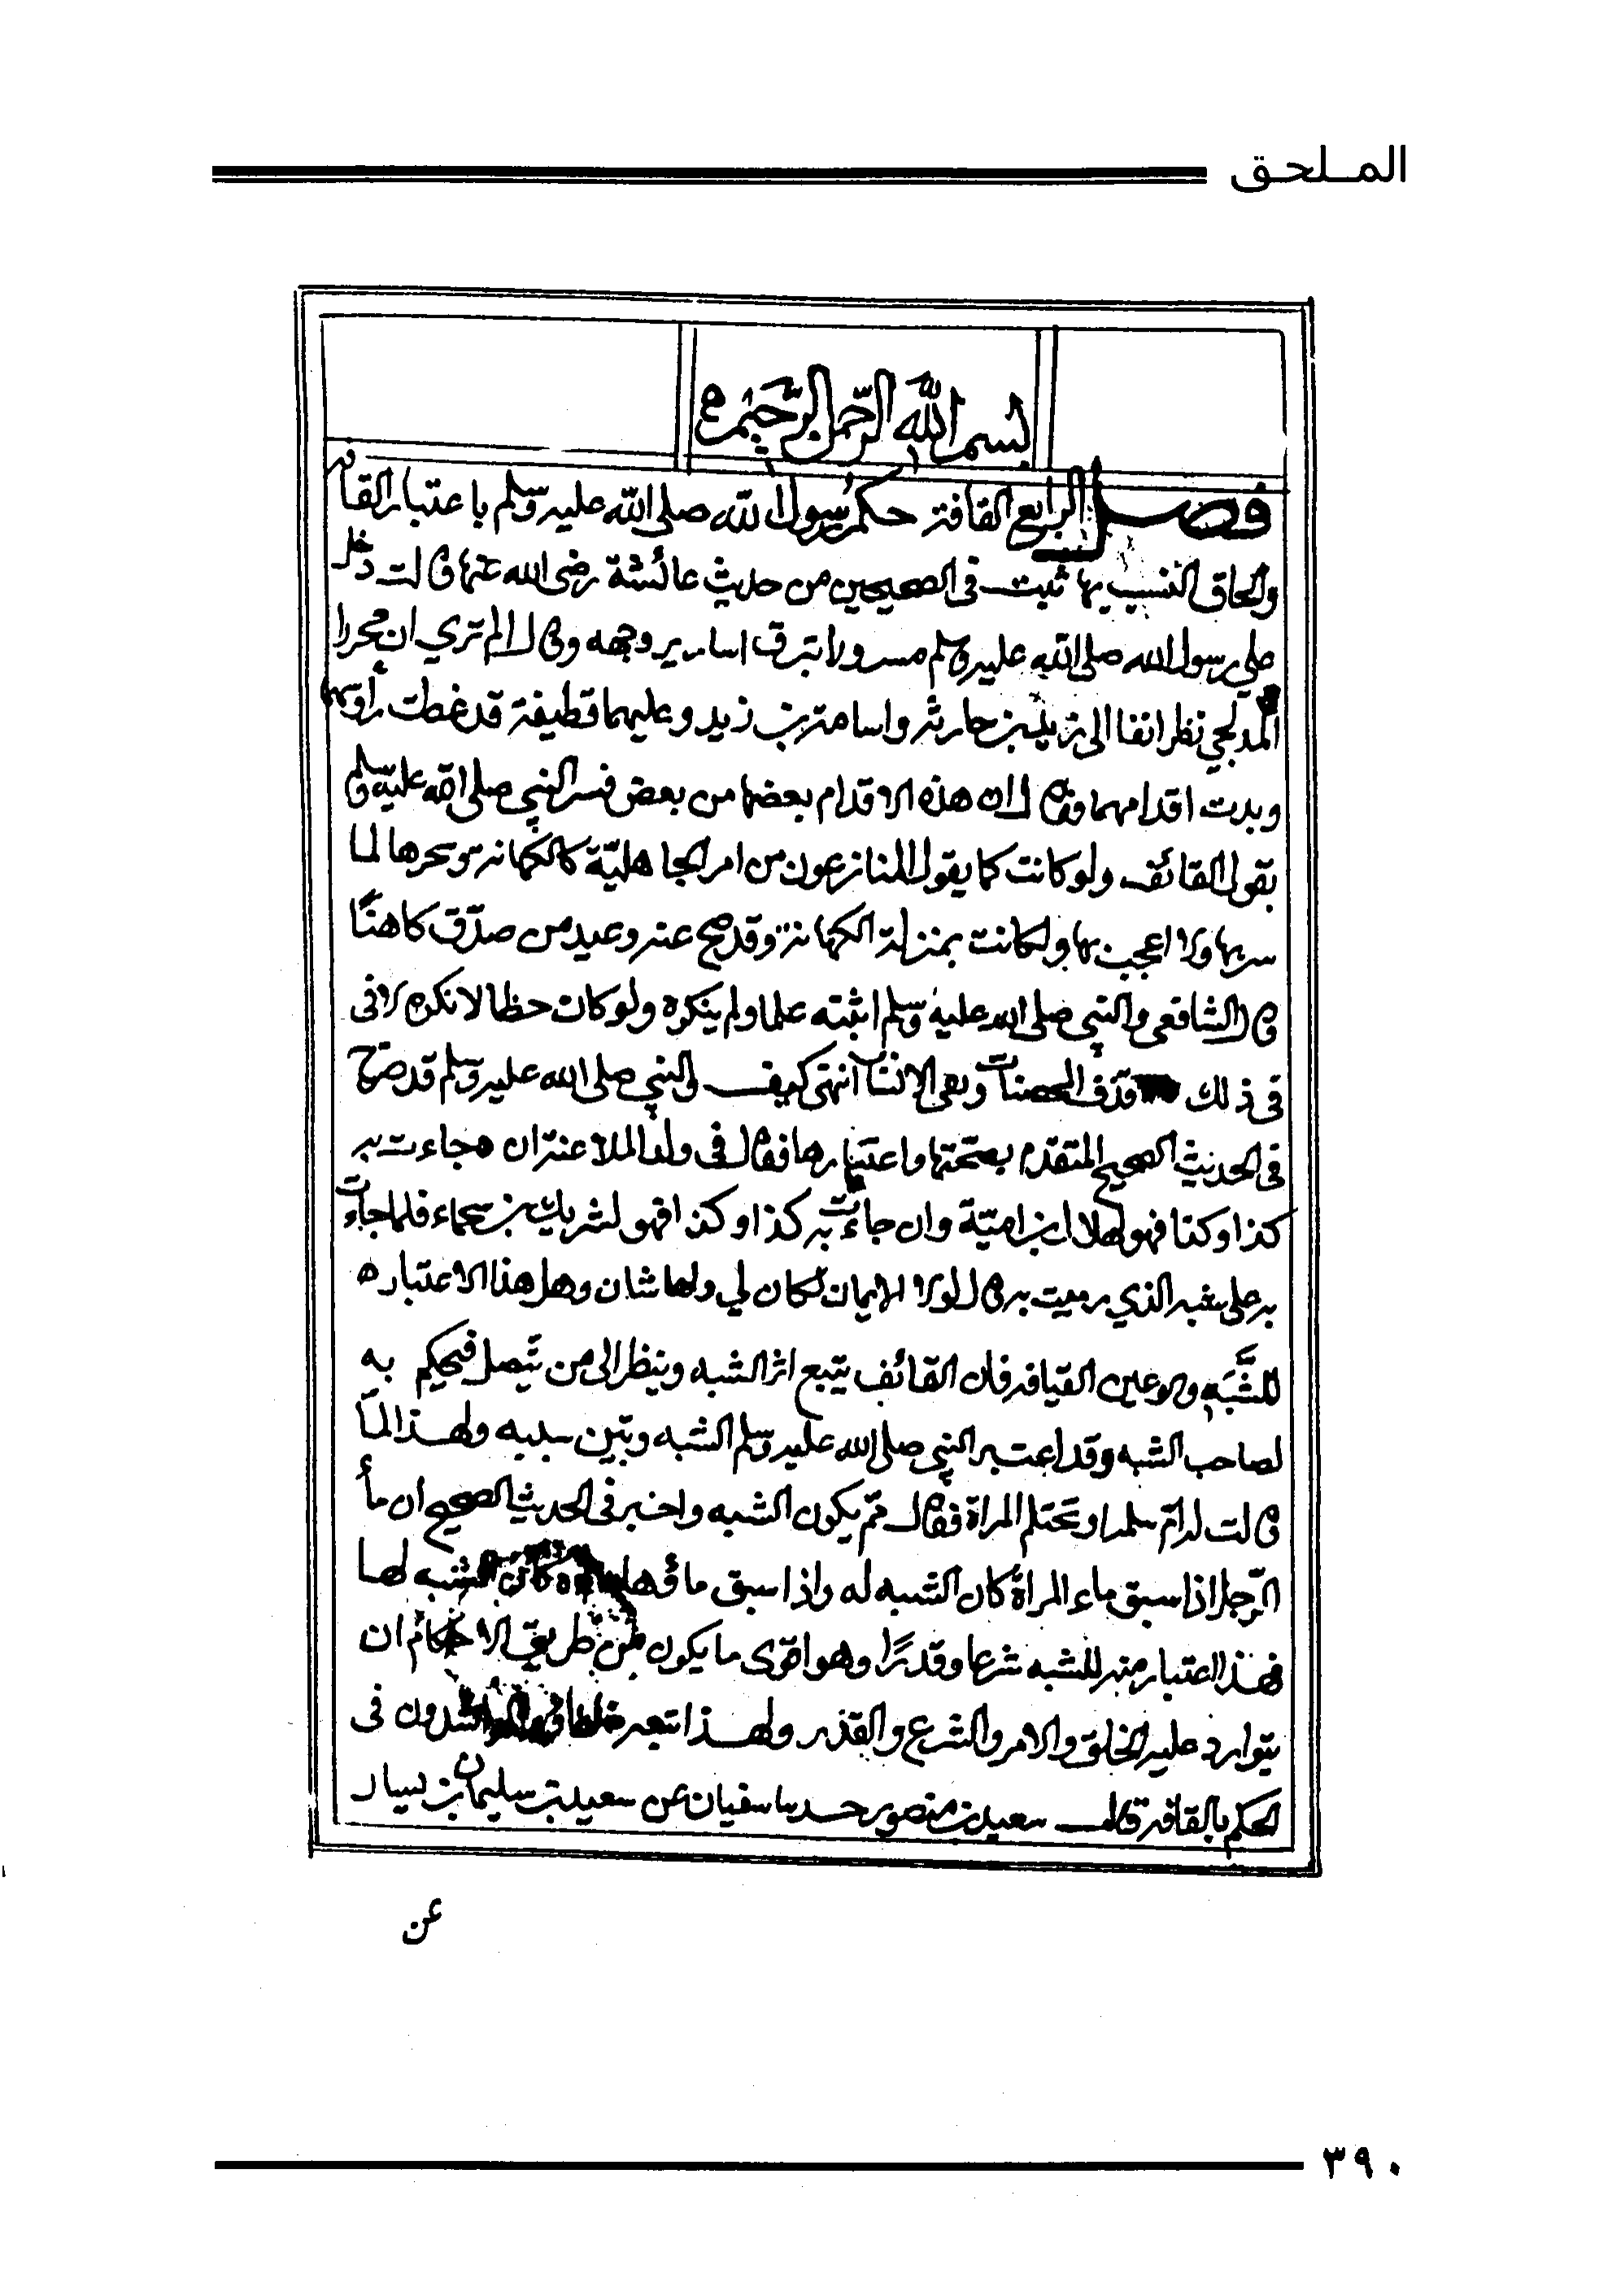 الملحق
بسم الله الرحمن الرحيم
فصل الرابع القافة حكم رسول الله صلى الله عليه وسلم باعتبار القافة
والحاق النسب بها ثبت في الصحيحين من حديث عائشة رضى الله عنها قالت دخل
علي رسول الله صلى الله عليه وسلم مسرورا تبرق اسارير وجهه وقال الم تري ان مجززا
المدلجي نظر انفا الى زيد بن حارثة واسامة بن زيد وعليهما قطيفة قد غطت رأوسهما
وبدت اقدامهما فقال ان هذه الاقدام بعضها من بعض فسر النبي صلى الله عليه وسلم
بقول القائف ولو كانت كما يقول المنازعون من امر الجاهلية كالكهانة ونحوها لما
سر بها ولا اعجب بها ولكانت بمنزلة الكهانة وقد صح عنه وعيد من صدّق كاهنًا
قال الشافعى والنبي صلى الله عليه وسلم اثبته علما ولم ينكره ولو كان خطا لانكره لان في
في ذلك قذف المحصنات ونفى الانساب انتهى كيف والنبي صلى الله عليه وسلم قد صرح
في الحديث الصحيح المتقدم بصحتها واعتبارها فقال في ولد الملاعنة ان جاءت به
كذا وكذا فهو لهلال ابن امية وان جاءت به كذا وكذا فهو لشريك بن سحماء فلما جاءت
به على شبه الذي رميت به قال لولا الايمان لكان لي ولها شان وهل هذا الا اعتباره
للشَّبَه وهو عين القيافة فان القائف يتبع اثر الشبه وينظر الى من يتصل فيحكم به
لصاحب الشبه وقد اعتبر النبي صلى الله عليه وسلم الشبه وبين سببه ولهذا لما
قالت له ام سلمة او تحتلم المراة فقال مم يكون الشبه واخبر في الحديث الصحيح ان مأ
الرجل اذا سبق ماء المراة كان الشبه له واذا سبق ماؤها كان الشبه لها
فهذا اعتبار منه للشبه شرعا وقدرًا وهو اقوى ما يكون من طريق الاحكام ان
يتوارد عليه الخلق والامر والشرع والقدر ولهذا تبعه الراشدون في
الحكم بالقافة قال سعيد بن منصور حدثنا سفيان عن سعيد بن سليمان بن يسار
عن
٣٩٠